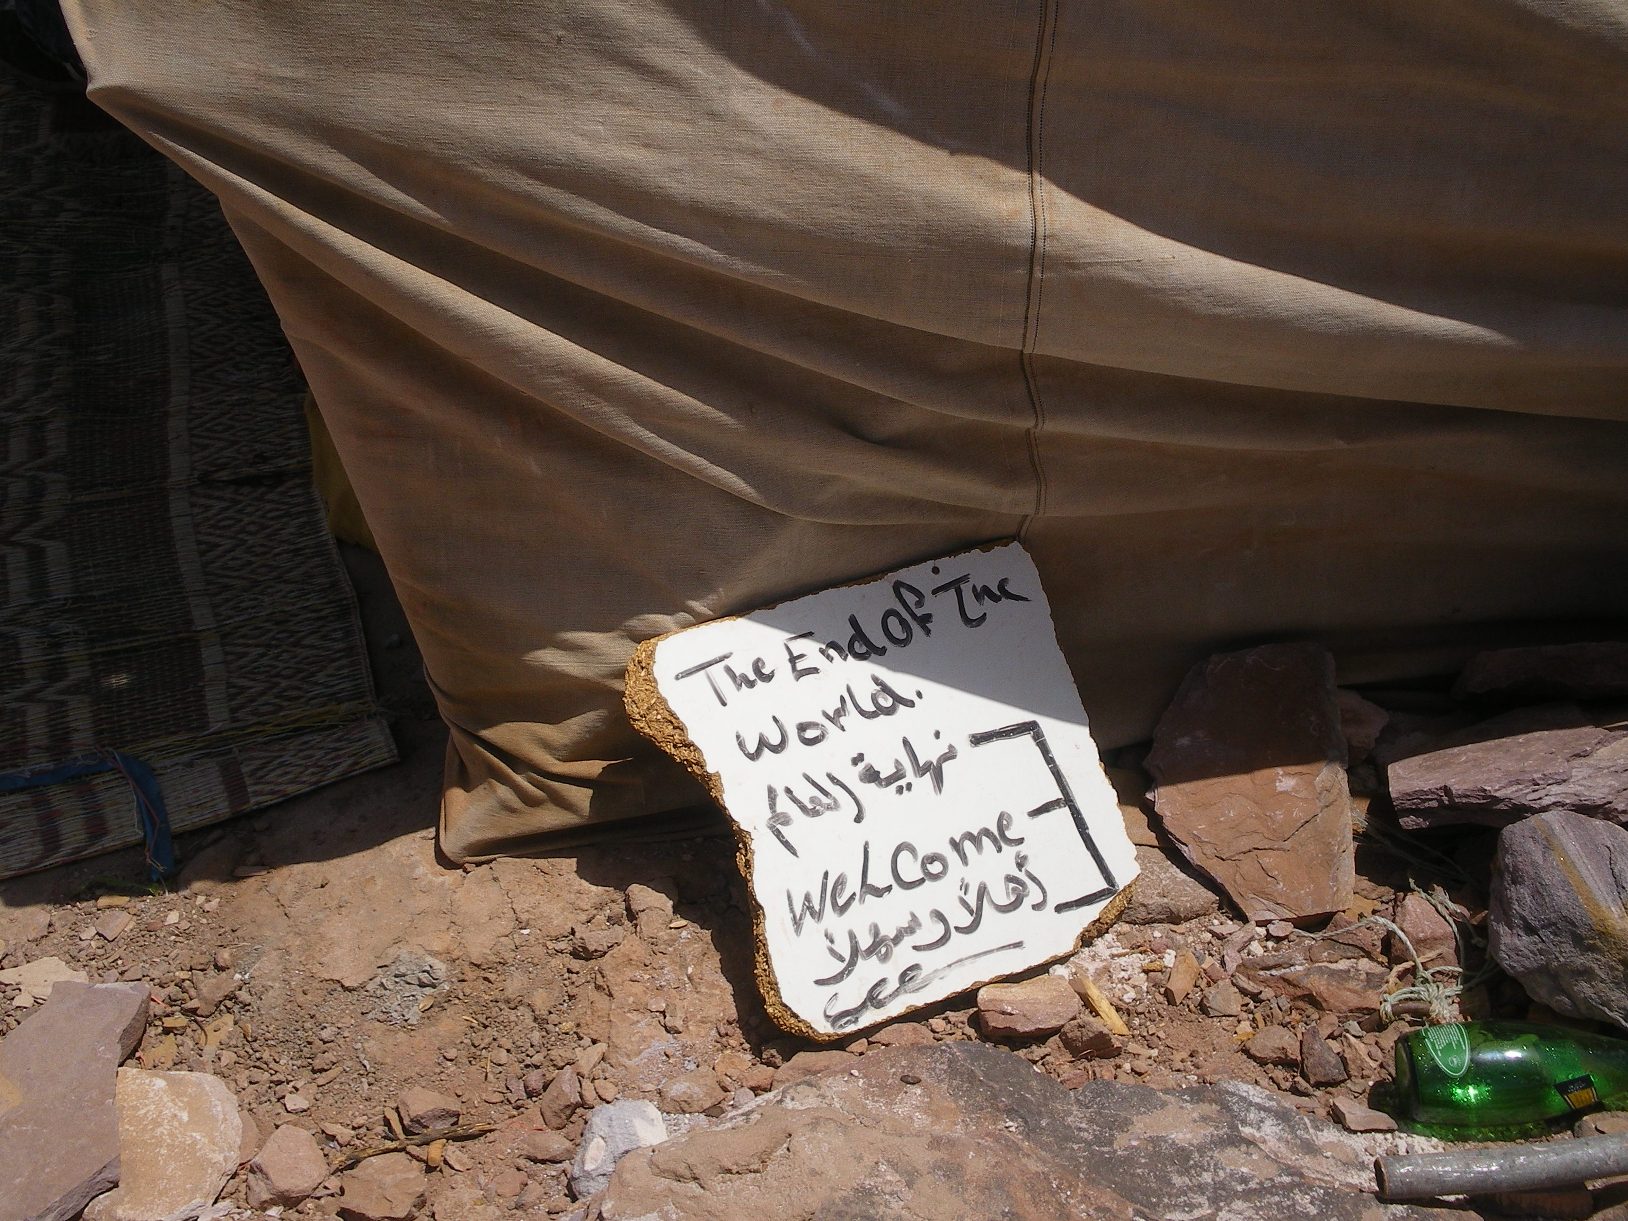 The End Of The
World.
نهاية العالم
Welcome
أهلاً وسهلاً
see